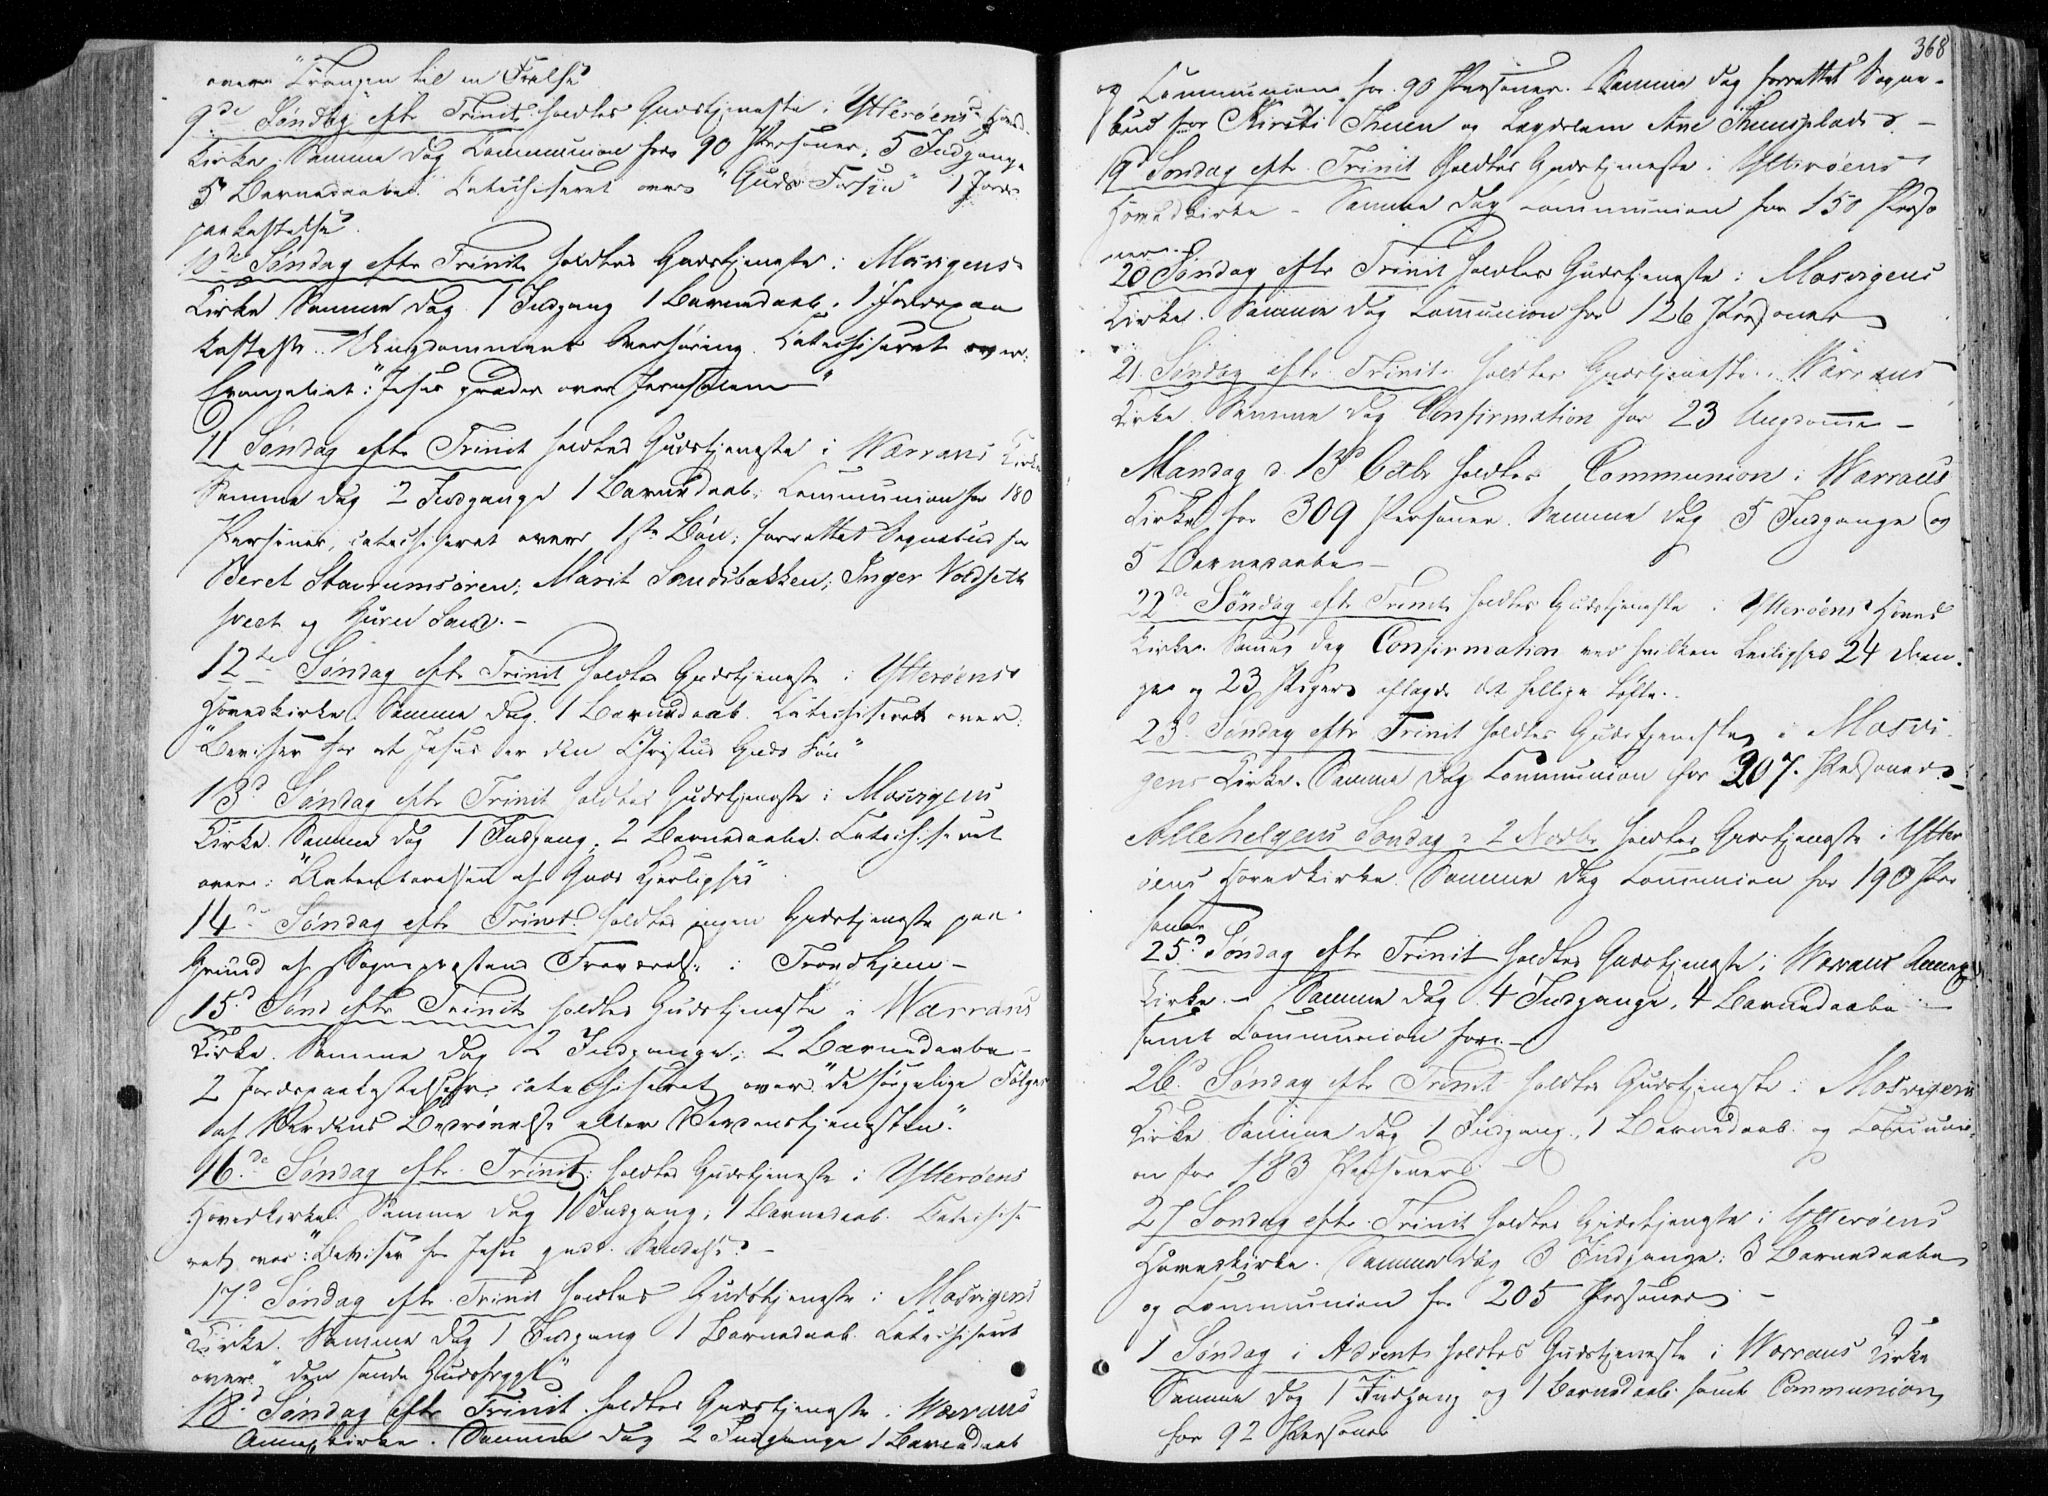 over "Trangen til en Frelser
9de Søndag eft. Trinit. holdtes Gudstjeneste i Ytterøens Hoved-
Kirke. Samme Dag Communion for 90 Personer; 5 Indgange
5 Barnedaabe. Catechiseret over "Guds Forsyn" 1 Jords-
paakastelse.
10de Søndag efter Trinit. holdtes Gudstjeneste i Mosvigens
Kirke Samme Dag 1 Indgang 1 Barnedaab. 1 Jordspaa
kastelse. Ungdommens Overhøring. Catechiseret over:
Evangeliet: "Jesus græder over Jerusalem"
11 Søndag efter Trinit holdtes Gudstjeneste i Wærrans Kirke
Samme Dag 2 Indgange 1 Barnedaab; Communion for 180
Personer, catechiseret over 1ste Bøn; forrettet Sognebud for
Beret Stavrumsøren; Marit Sandsbakken; Inger
og Guru Sand.-
12te Søndag eft. Trinit holdtes Gudstjeneste i Ytterøens
Hovedkirke. Samme Dag 1 Barnedaab. Catechiseret over:
"Beviser for at Jesus er den Christus Guds Søn"
13d Søndag efter Trinit holdtes Gudstjeneste i Mosvigens
Kirke. Samme Dag 1 Indgang, 2 Barnedaabe. Catechiseret
over: "Aabenbarelsen af Guds Herlighed"
14de Søndag efter Trinit. holdtes ingen Gudstjeneste paa
Grund af Sognepræstens Fraværelse i Trondhjem-
15d Sønd efter Trinit holdtes Gudstjeneste i Wærrans
Kirke. Samme Dag 2 Indgange; 2 Barnedaabe
2 Jordspaakastelser, catechiseret over "de sørgelige Følger
af Verdens Bedrøvelse eller Verdenstjenesten".
16de Søndag eft. Trinit: holdtes Gudstjeneste i Ytterøens
Hovedkirke. Samme Dag 1 Indgang; 1 Barnedaab. Catechise-
ret over: "Beviser for Jesu gudd. Sendelse. -
17d Søndag eft. Trinit holdtes Gudstjeneste i Mosvigens
Kirke. Samme Dag 1 Indgang 1 Barnedaab. Catechiseret
over "den sande Gudsfrygt"
18d Søndag efter Trinit. holdtes Gudstjeneste i Wærrans
Annexkirke. Samme Dag 2 Indgange 1 Barnedaab
368
og Communion for 90 Personer. Samme Dag forrettet Sogne-
bud for Kirsti Thuen og Lægdslem Ane
19d Søndag eft. Trinit holdtes Gudstjeneste i Ytterøens
Hovedkirke - Samme Dag Communion for 150 Perso
ner.
20 Søndag efter Trinit holdtes Gudstjeneste i Mosvigens
Kirke. Samme Dag Communion for 126 Personer
21. Søndag efter Trinit. holdtes Gudstjeneste i Wærrans
Kirke Samme Dag Confirmation for 23 Ungdomme -
Mandag d. 13d Octbr holdtes Communion i Wærrans
Kirke for 309 Personer. Samme Dag 5 Indgange og
5 Barnedaabe -
22de Søndag eft. Trinit. holdtes Gudstjeneste i Ytterøens Hoved
kirke. Samme Dag Confirmation ved hvilken Leilighed 24 Dren-
ge og 23 Piger aflagde det hellige Løfte.
23d Søndag efter Trinit holdtes Gudstjeneste i Mosvi-
gens Kirke. Samme Dag Communion for 207. Personer.-
Allehelgens Søndag d 2 Novbr holdtes Gudstjeneste i Ytter
øens Hovedkirke. Samme Dag Communion for 190 Per
soner
25d Søndag efter Trinit holdtes Gudstjeneste i Wærrans Annex
Kirke. - Samme Dag 4 Indgange, 4 Barnedaabe -
samt Communion for. -
26d Søndag efter Trinit holdtes Gudstjeneste i Mosvigens
Kirke Samme Dag 1 Indgang., 1 Barnedaab og Communi-
on for 183 Personer. -
27 Søndag efter Trinit holdtes Gudstjeneste i Ytterøens
Hovedkirke. Samme Dag 3 Indgange; 3 Barnedaabe
og Communion for 205 Personer -
1 Søndag i Advent holdtes Gudstjeneste i Wærrans Kirke
Samme Dag 1 Indgang og 1 Barnedaab. samt Communion
for 92 Personer